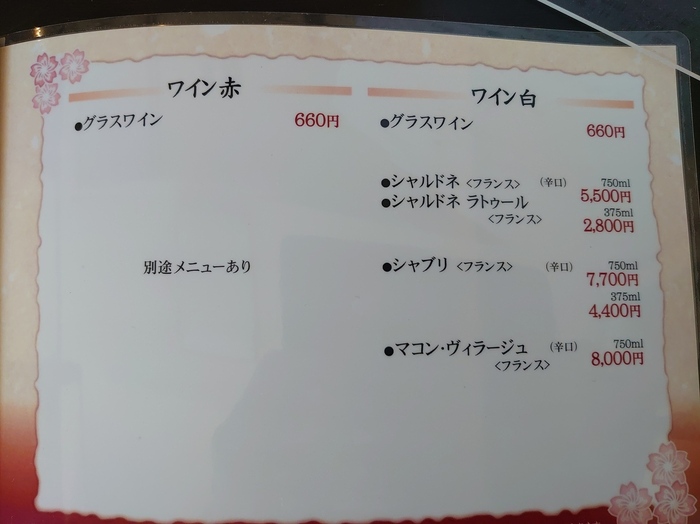 ワイン赤
●グラスワイン 660円
別途メニューあり
ワイン白
●グラスワイン 660円
●シャルドネ〈フランス〉 (辛口) 750ml
5,500円
●シャルドネ ラトゥール 375ml
〈フランス〉 2,800円
●シャブリ〈フランス〉 (辛口) 750ml
7,700円
375ml
4,400円
●マコン・ヴィラージュ (辛口) 750ml
〈フランス〉 8,000円